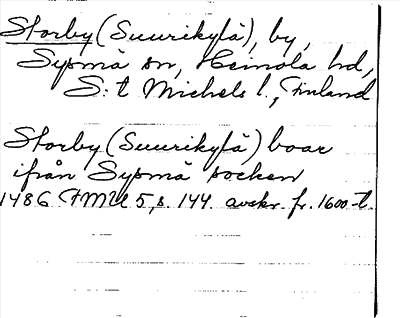 Storby (Suurikylä), by,
Sysmä sn, Heinola hd,
S:t Michels l., Finland
Storby (Suurikylä) boar
ifrån Sysmä socken
1486 FMU 5, s. 144. avskr. fr. 1600-t.